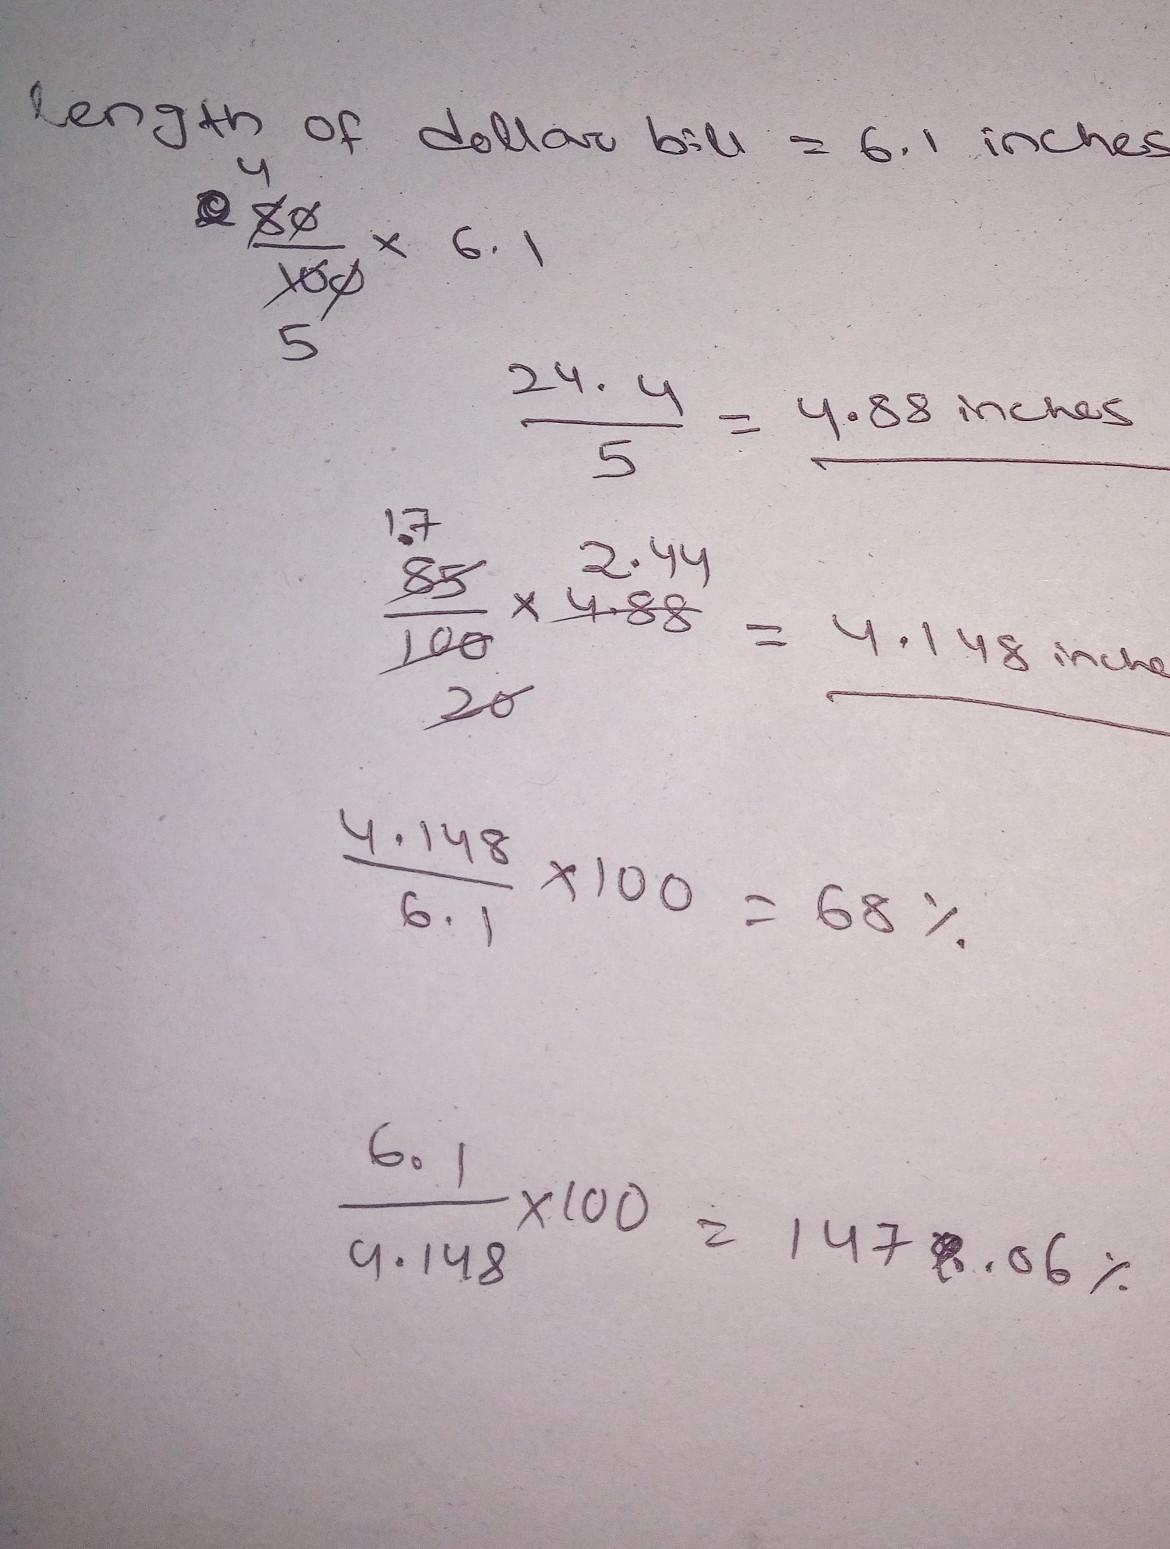 length of dollar bill = 6.1 inches
4
80
100
× 6.1
5
24.4
5
= 4.88 inches
1.7
2.44
85
100
× 4.88
= 4.148 inche
20
4.148
6.1
×100 = 68%
6.1
4.148
×100 = 147.06%